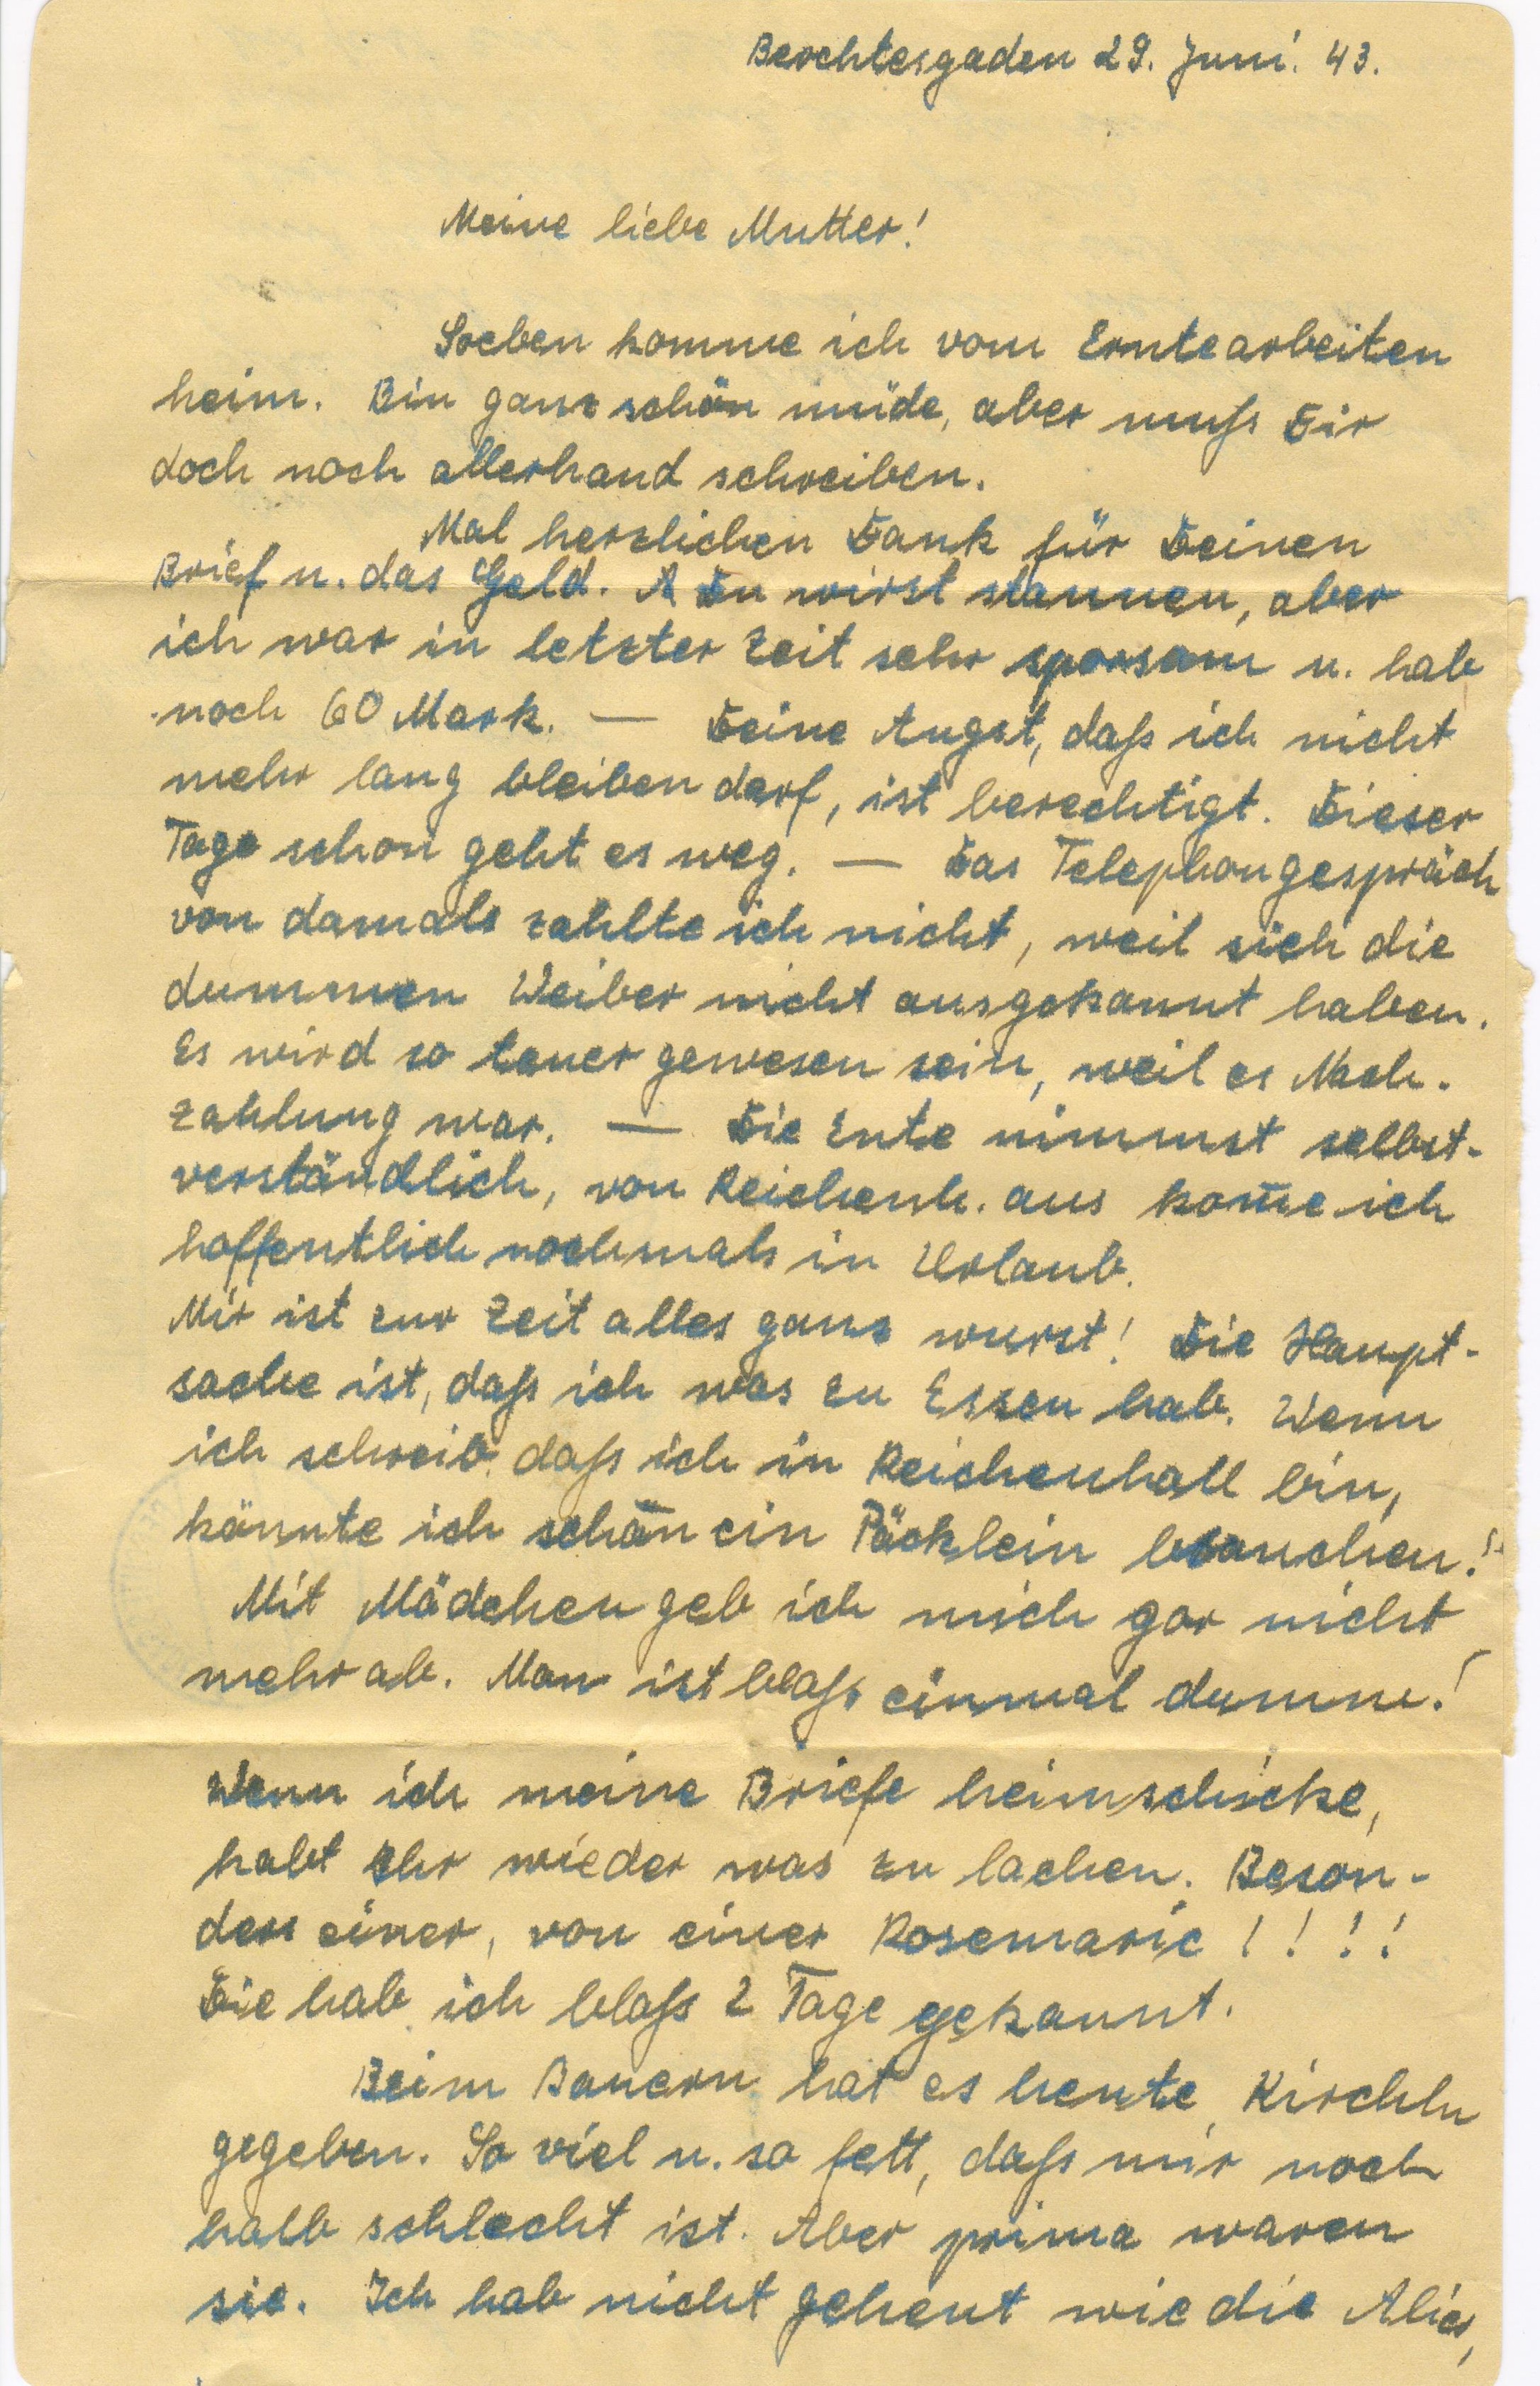 Berchtesgaden 29. Juni. 43.
Meine liebe Mutter!
Soeben komme ich vom Erntearbeiten
heim. Bin ganz schön müde, aber muß Dir
doch noch allerhand schreiben.
Mal herzlichen Dank für Deinen
Brief u. das Geld. Du wirst staunen, aber
ich war in letzter Zeit sehr sparsam u. hab
noch 60 Mark. — Deine Angst, daß ich nicht
mehr lang bleiben darf, ist berechtigt. Dieser
Tage schon geht es weg. — Das Telephongespräch
von damals zahlte ich nicht, weil sich die
dummen Weiber nicht ausgekannt haben.
Es wird so teuer gewesen sein, weil es Nach-
zahlung war. — Die Ente nimmst selbst-
verständlich, von Reichenh. aus kom̄e ich
hoffentlich nochmals in Urlaub.
Mir ist zur Zeit alles ganz wurst! Die Haupt-
sache ist, daß ich was zu Essen hab. Wenn
ich schreib, daß ich in Reichenhall bin,
könnte ich schön ein Päcklein brauchen!
Mit Mädchen geb ich mich gar nicht
mehr ab. Man ist bloß einmal dumm!
Wenn ich meine Briefe heimschicke,
habt Ihr wieder was zu lachen. Beson-
ders einer, von einer Rosemarie !!!!
Die hab ich bloß 2 Tage gekannt.
Beim Bauern hat es heute Kirchln
gegeben. So viel u. so fett, daß mir noch
halb schlecht ist. Aber prima waren
sie. Ich hab nicht geheut wie die